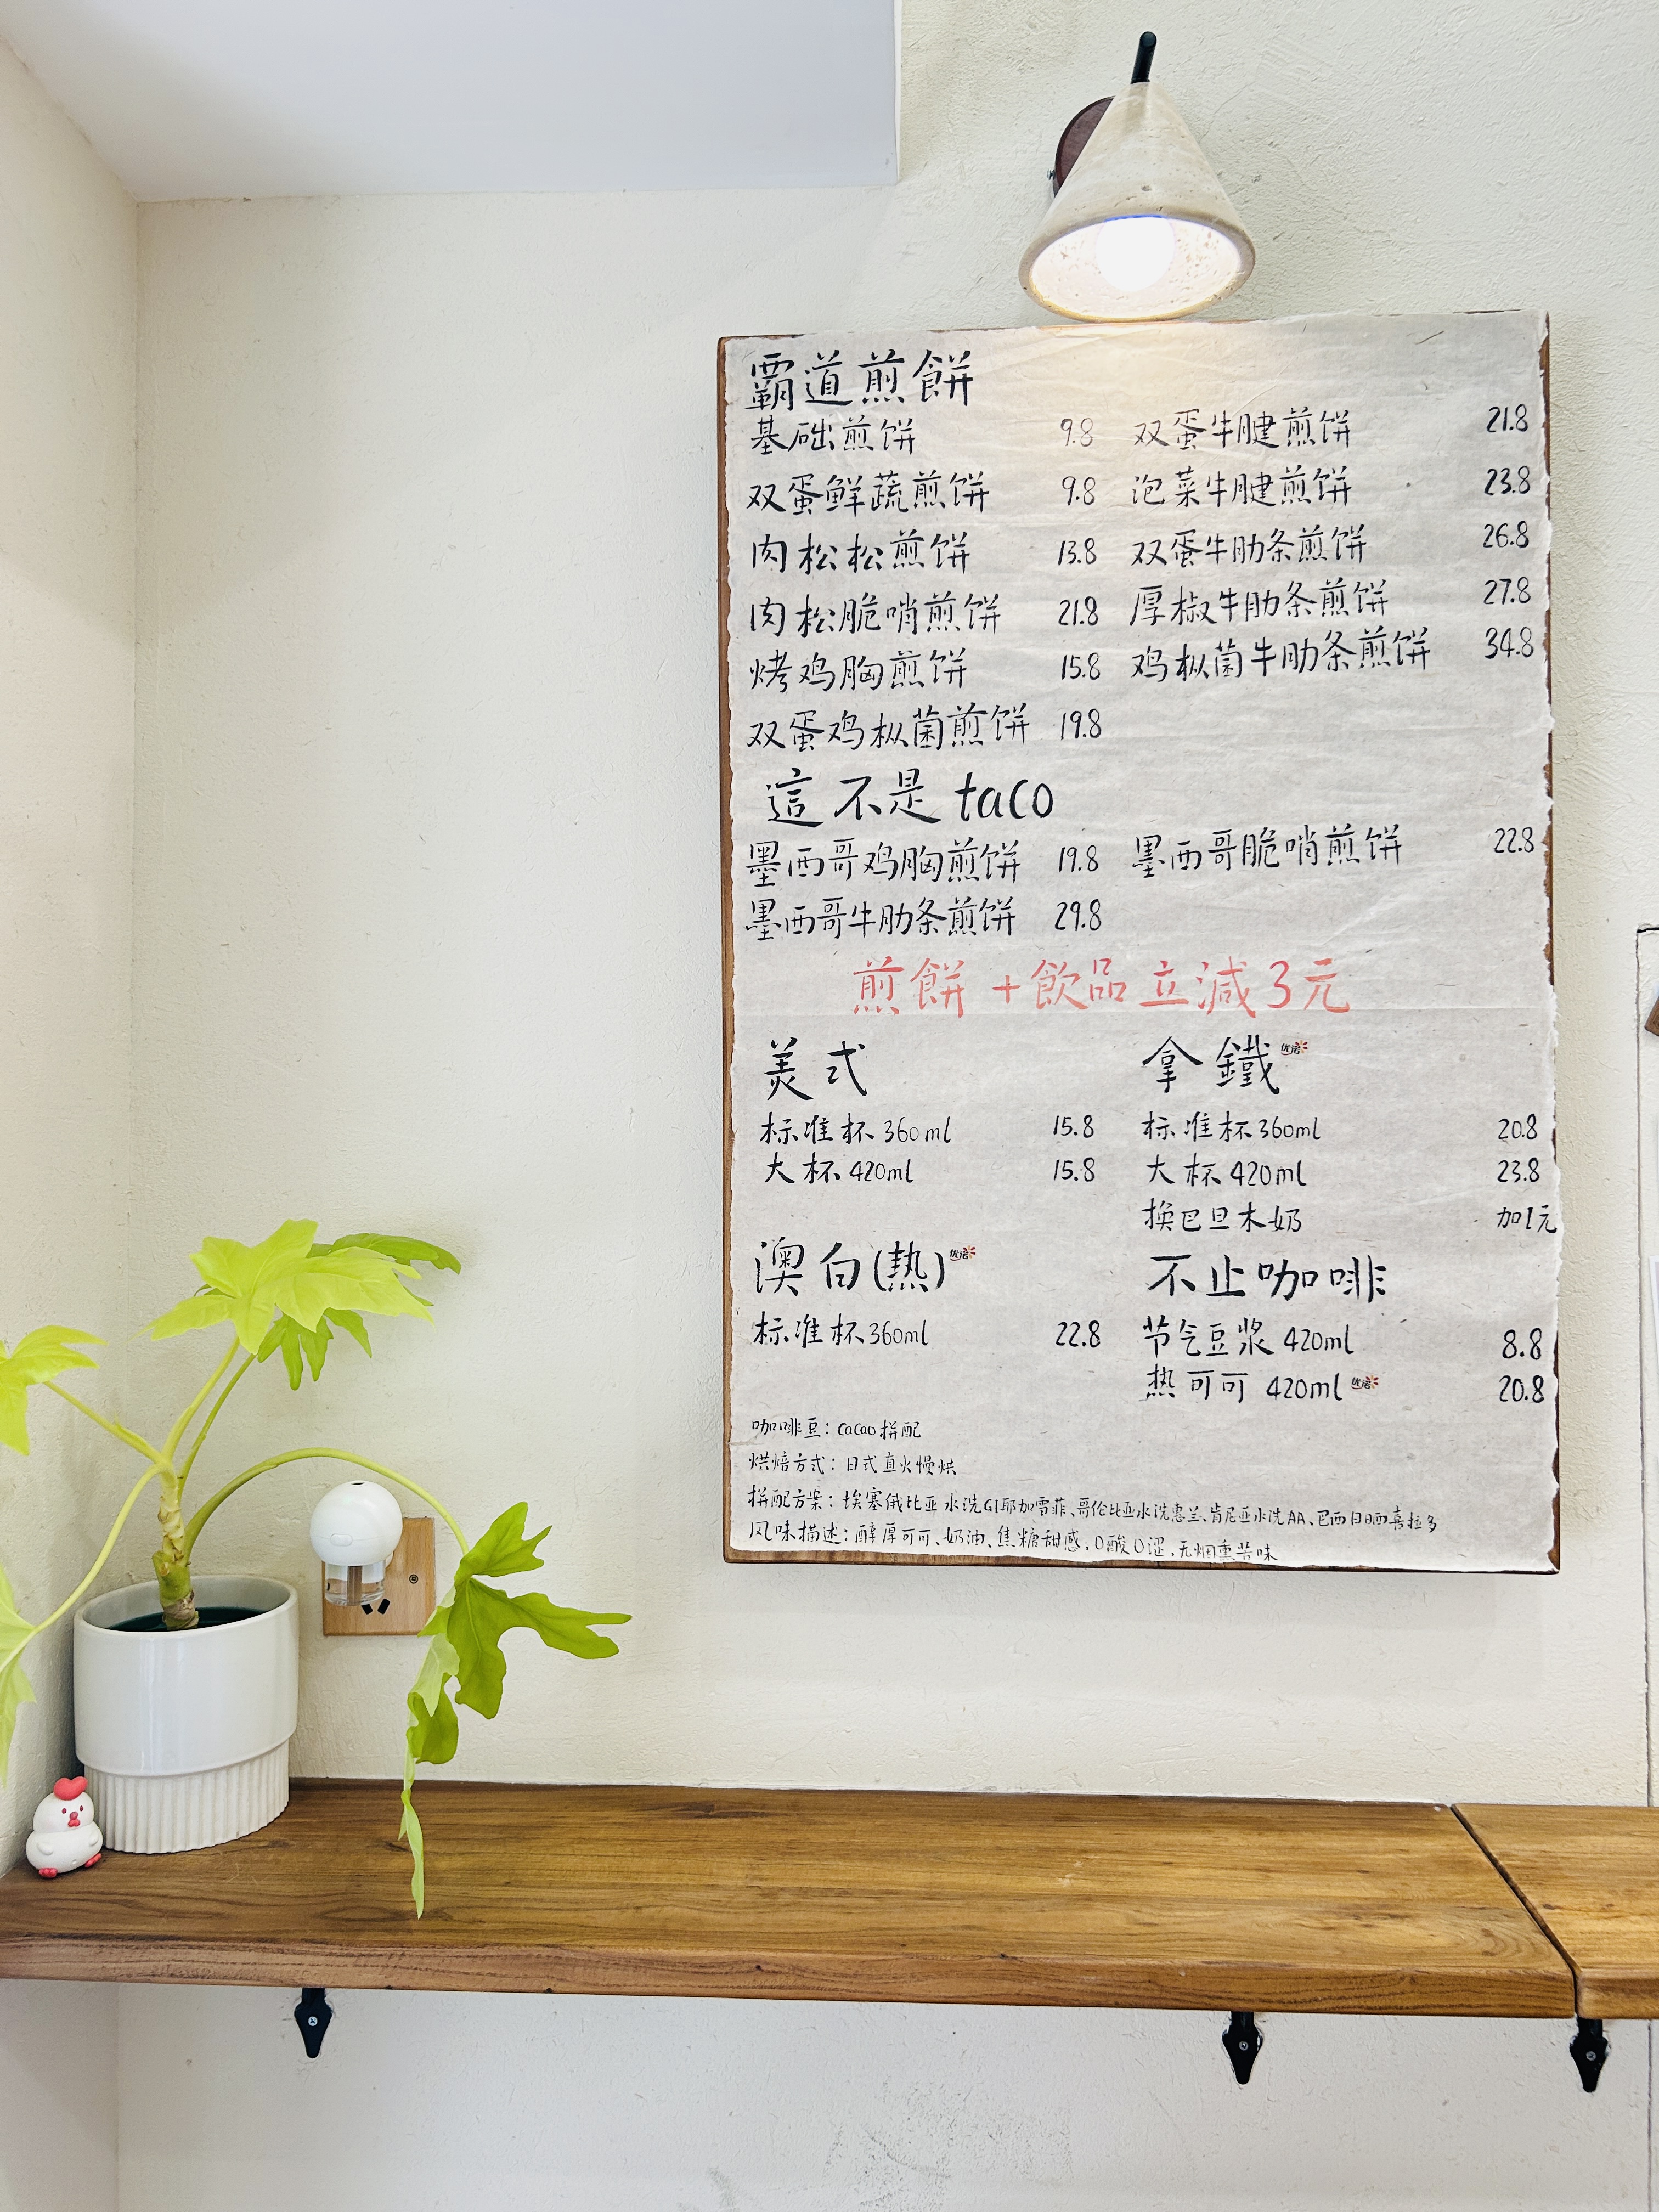 霸道煎餅
基础煎饼 9.8 双蛋牛腱煎饼 21.8
双蛋鲜蔬煎饼 9.8 泡菜牛腱煎饼 23.8
肉松松煎饼 13.8 双蛋牛肋条煎饼 26.8
肉松脆哨煎饼 21.8 厚椒牛肋条煎饼 27.8
烤鸡胸煎饼 15.8 鸡枞菌牛肋条煎饼 34.8
双蛋鸡枞菌煎饼 19.8
這不是taco
墨西哥鸡胸煎饼 19.8 墨西哥脆哨煎饼 22.8
墨西哥牛肋条煎饼 29.8
煎餅+飲品立減3元
美式 拿鐵 优诺
标准杯360ml 15.8 标准杯360ml 20.8
大杯420ml 15.8 大杯420ml 23.8
换巴旦木奶 加1元
澳白(热) 优诺 不止咖啡
标准杯360ml 22.8 节气豆浆 420ml 8.8
热可可 420ml 优诺 20.8
咖啡豆：cacao拼配
烘焙方式：日式直火慢烘
拼配方案：埃塞俄比亚水洗G1耶加雪菲、哥伦比亚水洗惠兰、肯尼亚水洗AA、巴西日晒喜拉多
风味描述：醇厚可可、奶油、焦糖甜感，0酸0涩，无烟熏苦味